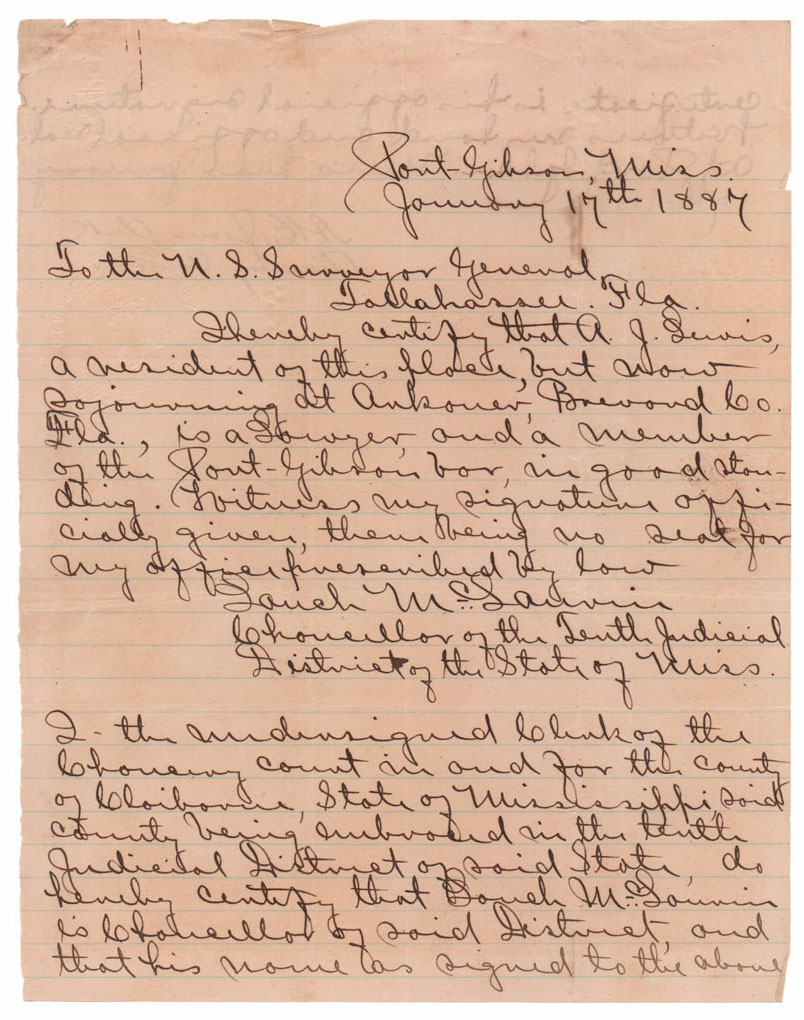 Port-Gibson, Miss.
January 17th 1887
To the U. S. Surveyor General,
Tallahassee. Fla.
I hereby certify that A. J. Lewis,
a resident of this place, but now
sojourning at Ankoner, Brevard Co.
Fla., is a Lawyer, and a member
of the Port-Gibson bar, in good stan-
ding. Witness my signature offi-
cially given, there being no seal for
my office prescribed by law
Lauch McLaurin
Chancellor of the Tenth Judicial
District of the State of Miss.
I - the undersigned Clerk of the
Chancery court in and for the county
of Claiborne, State of Mississippi, said
county being embraced in the tenth
Judicial District of said State, do
hereby certify that Lauch McLaurin
is Chancellor of said District, and
that his name as signed to the above